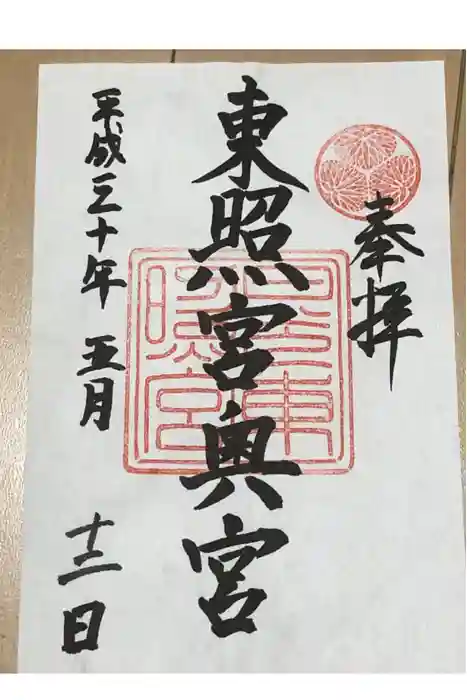 奉拝
東照宮奥宮
日光東
照宮
平成三十年 五月 十二日